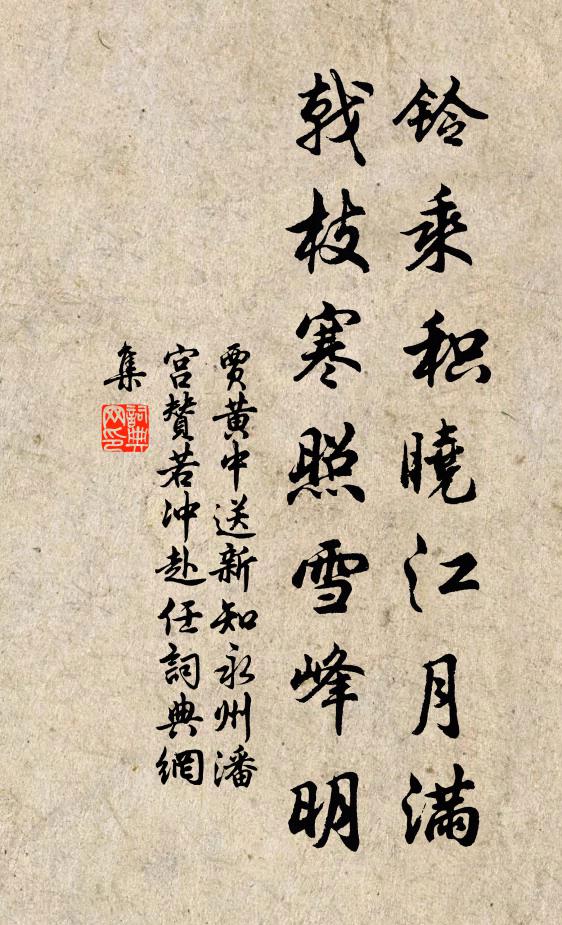 铃乘积晓江月满
戟枝寒照雪峰明
贾黄中送新知永州潘
宫赞若冲赴任词典網
集
詞典
网印